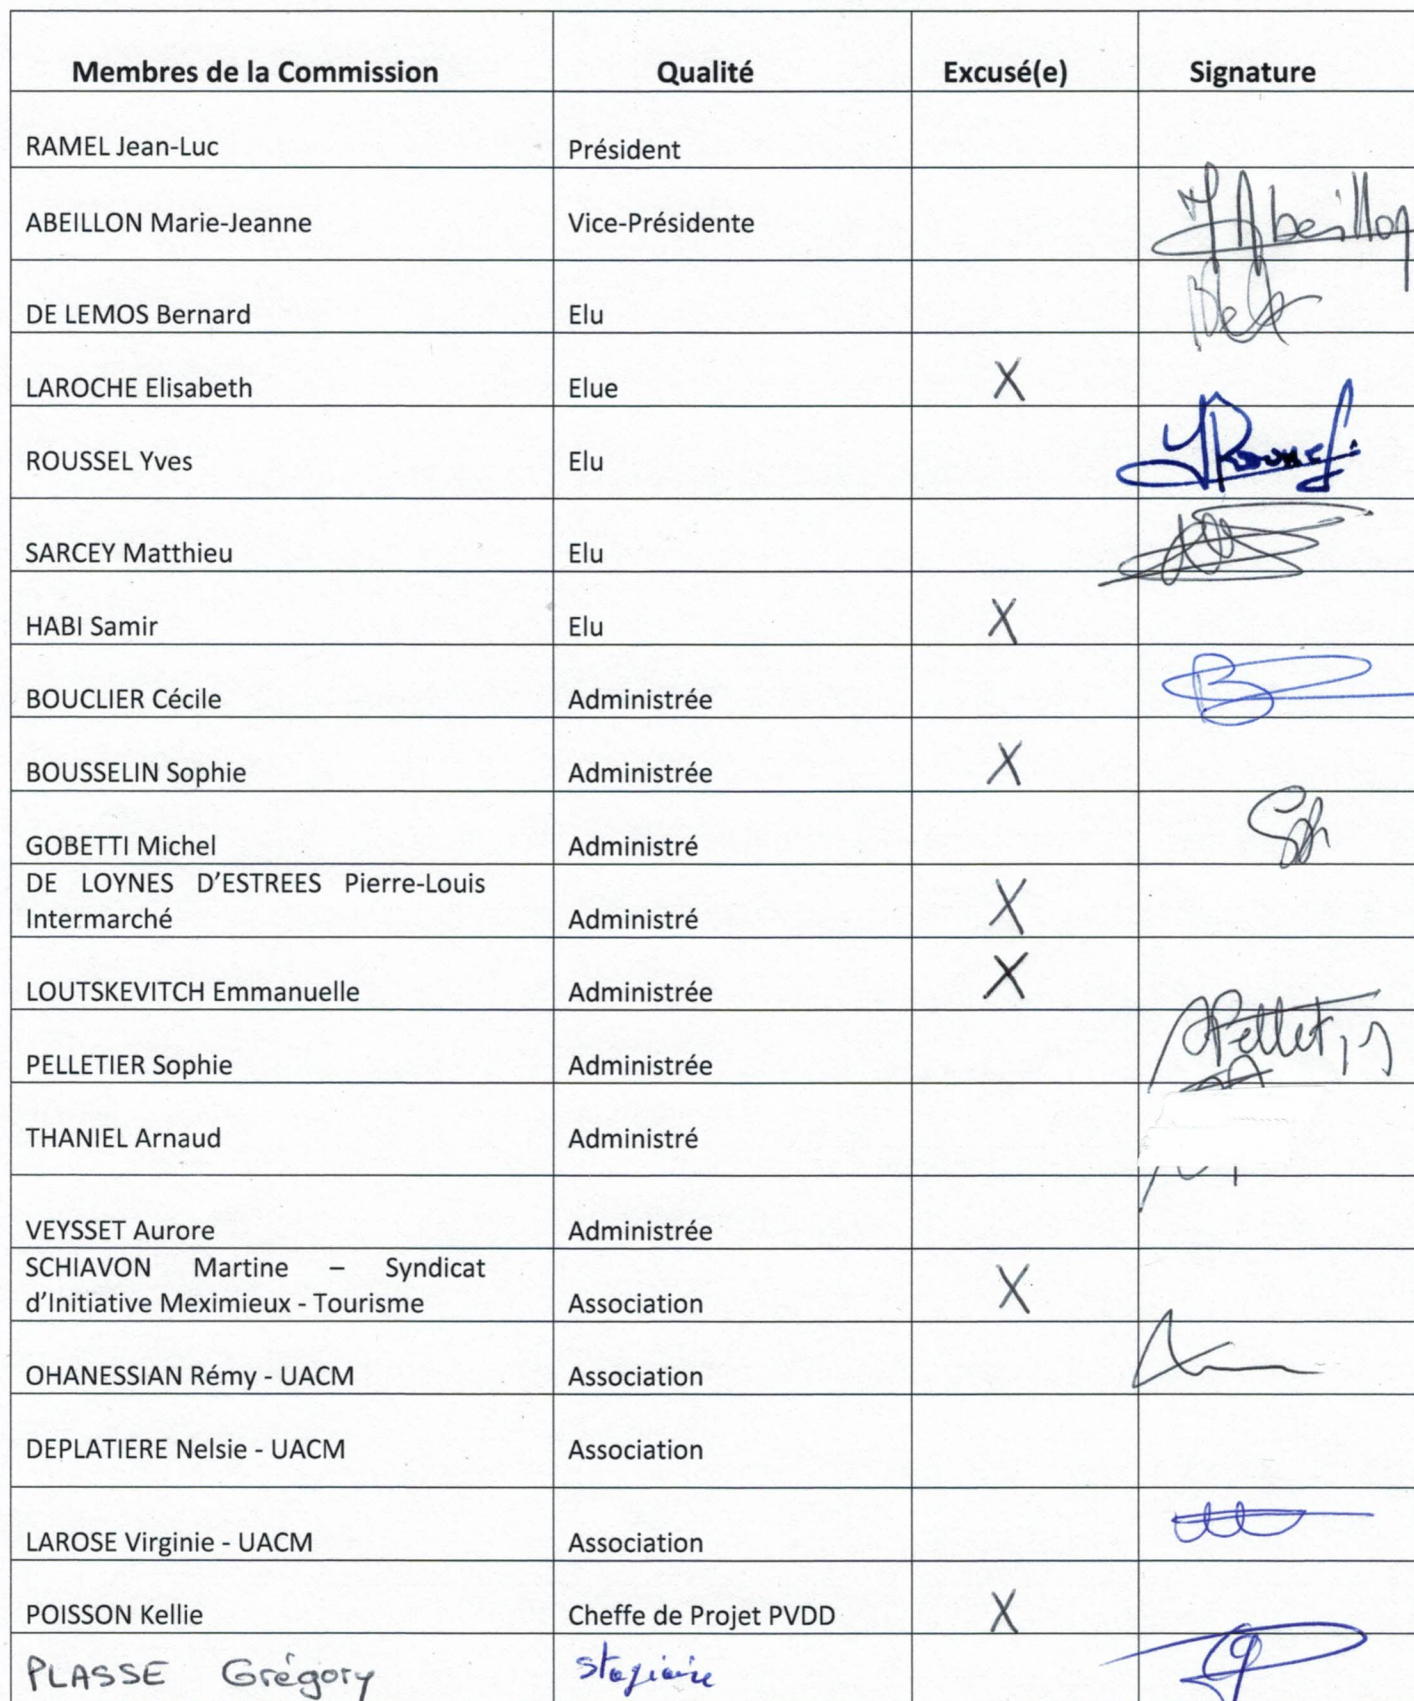 Membres de la Commission Qualité Excusé(e) Signature
RAMEL Jean-Luc Président
ABEILLON Marie-Jeanne Vice-Présidente Abeillon
DE LEMOS Bernard Elu
LAROCHE Elisabeth Elue X
ROUSSEL Yves Elu
SARCEY Matthieu Elu
HABI Samir Elu X
BOUCLIER Cécile Administrée
BOUSSELIN Sophie Administrée X
GOBETTI Michel Administré
DE LOYNES D'ESTREES Pierre-Louis
Intermarché Administré X
LOUTSKEVITCH Emmanuelle Administrée X
PELLETIER Sophie Administrée
THANIEL Arnaud Administré
VEYSSET Aurore Administrée
SCHIAVON Martine – Syndicat
d'Initiative Meximieux - Tourisme Association X
OHANESSIAN Rémy - UACM Association
DEPLATIERE Nelsie - UACM Association
LAROSE Virginie - UACM Association
POISSON Kellie Cheffe de Projet PVDD X
PLASSE Grégory Stagiaire